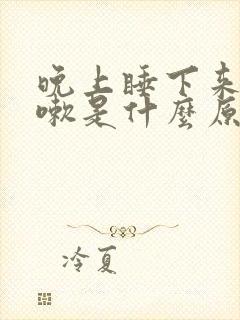 晚上睡下来
嗽是什麼原
冷夏